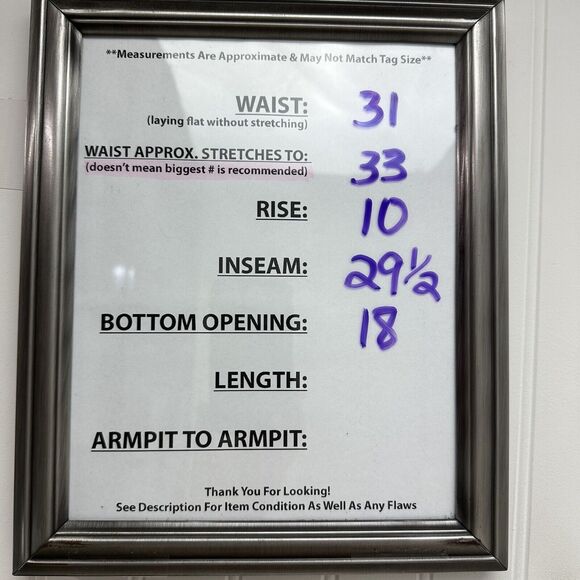 **Measurements Are Approximate & May Not Match Tag Size**
WAIST: 31
(laying flat without stretching)
WAIST APPROX. STRETCHES TO: 33
(doesn't mean biggest # is recommended)
RISE: 10
INSEAM: 29 1/2
BOTTOM OPENING: 18
LENGTH:
ARMPIT TO ARMPIT:
Thank You For Looking!
See Description For Item Condition As Well As Any Flaws